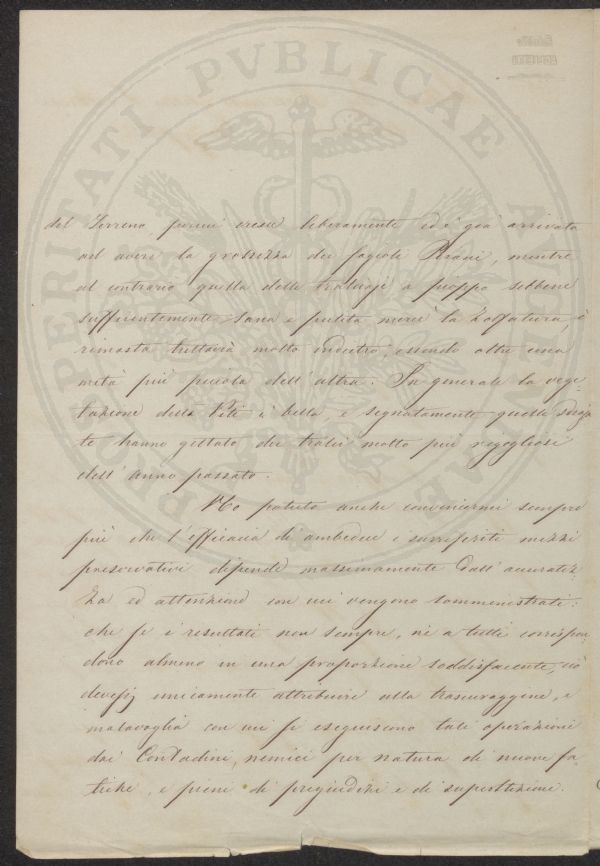 PROSPERITATI PVBLICAE AVGENDAE
del Terreno, perciò cresce liberamente ed è già arrivata
ad avere la grossezza dei fagioli Romani, mentre
al contrario quella delle a pioppo sebbene
sufficientemente sana e pulita mercè la Zolfatura, è
rimasta tuttavia molto indietro, essendo oltre una
metà più piccola dell'altra. In generale la vege
tazione della Vite è bella, e segnatamente quelle
te hanno gettato dei tralci molto più rigogliosi
dell'anno passato.
Ho potuto anche convincermi sempre
più che l'efficacia di ambedue i surreferiti mezzi
preservativi dipende massimamente dall'accuratez
za ed attenzione con cui vengono somministrati:
che se i resultati non sempre, nè a tutti corrispon
dono almeno in una proporzione soddisfacente, ciò
devesi unicamente attribuire alla trascuraggine, e
malavoglia con cui si eseguiscono tali operazioni
dai Contadini, nemici per natura di nuove fa
tiche, e pieni di pregiudizi e di superstizione.